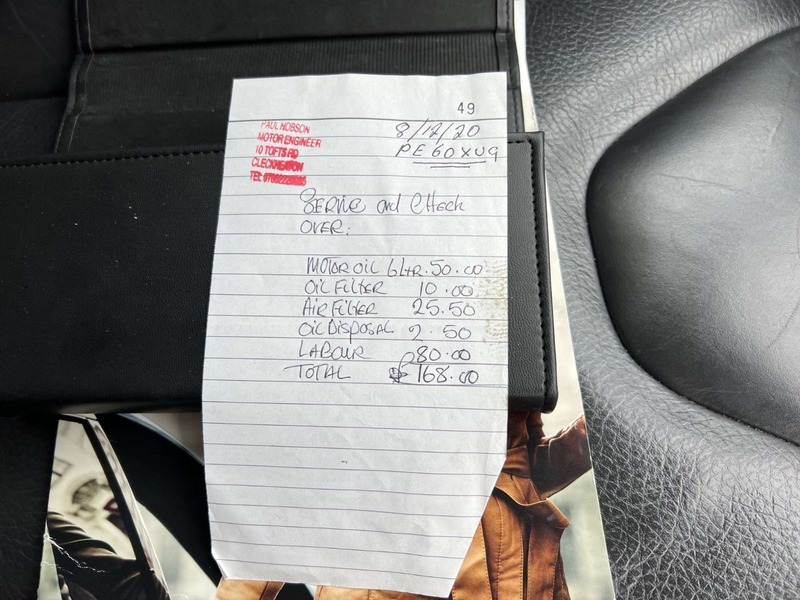 49
PAUL HOBSON
MOTOR ENGINEER
10 TOFTS RD
CLECKHEATON
TEL:
8/12/20
PE60XUG
SERVICE and CHECK
OVER:
MOTOR OIL 6 LTR. 50.00
OIL FILTER 10.00
AIR FILTER 25.50
OIL DISPOSAL 2.50
LABOUR 80.00
TOTAL £168.00